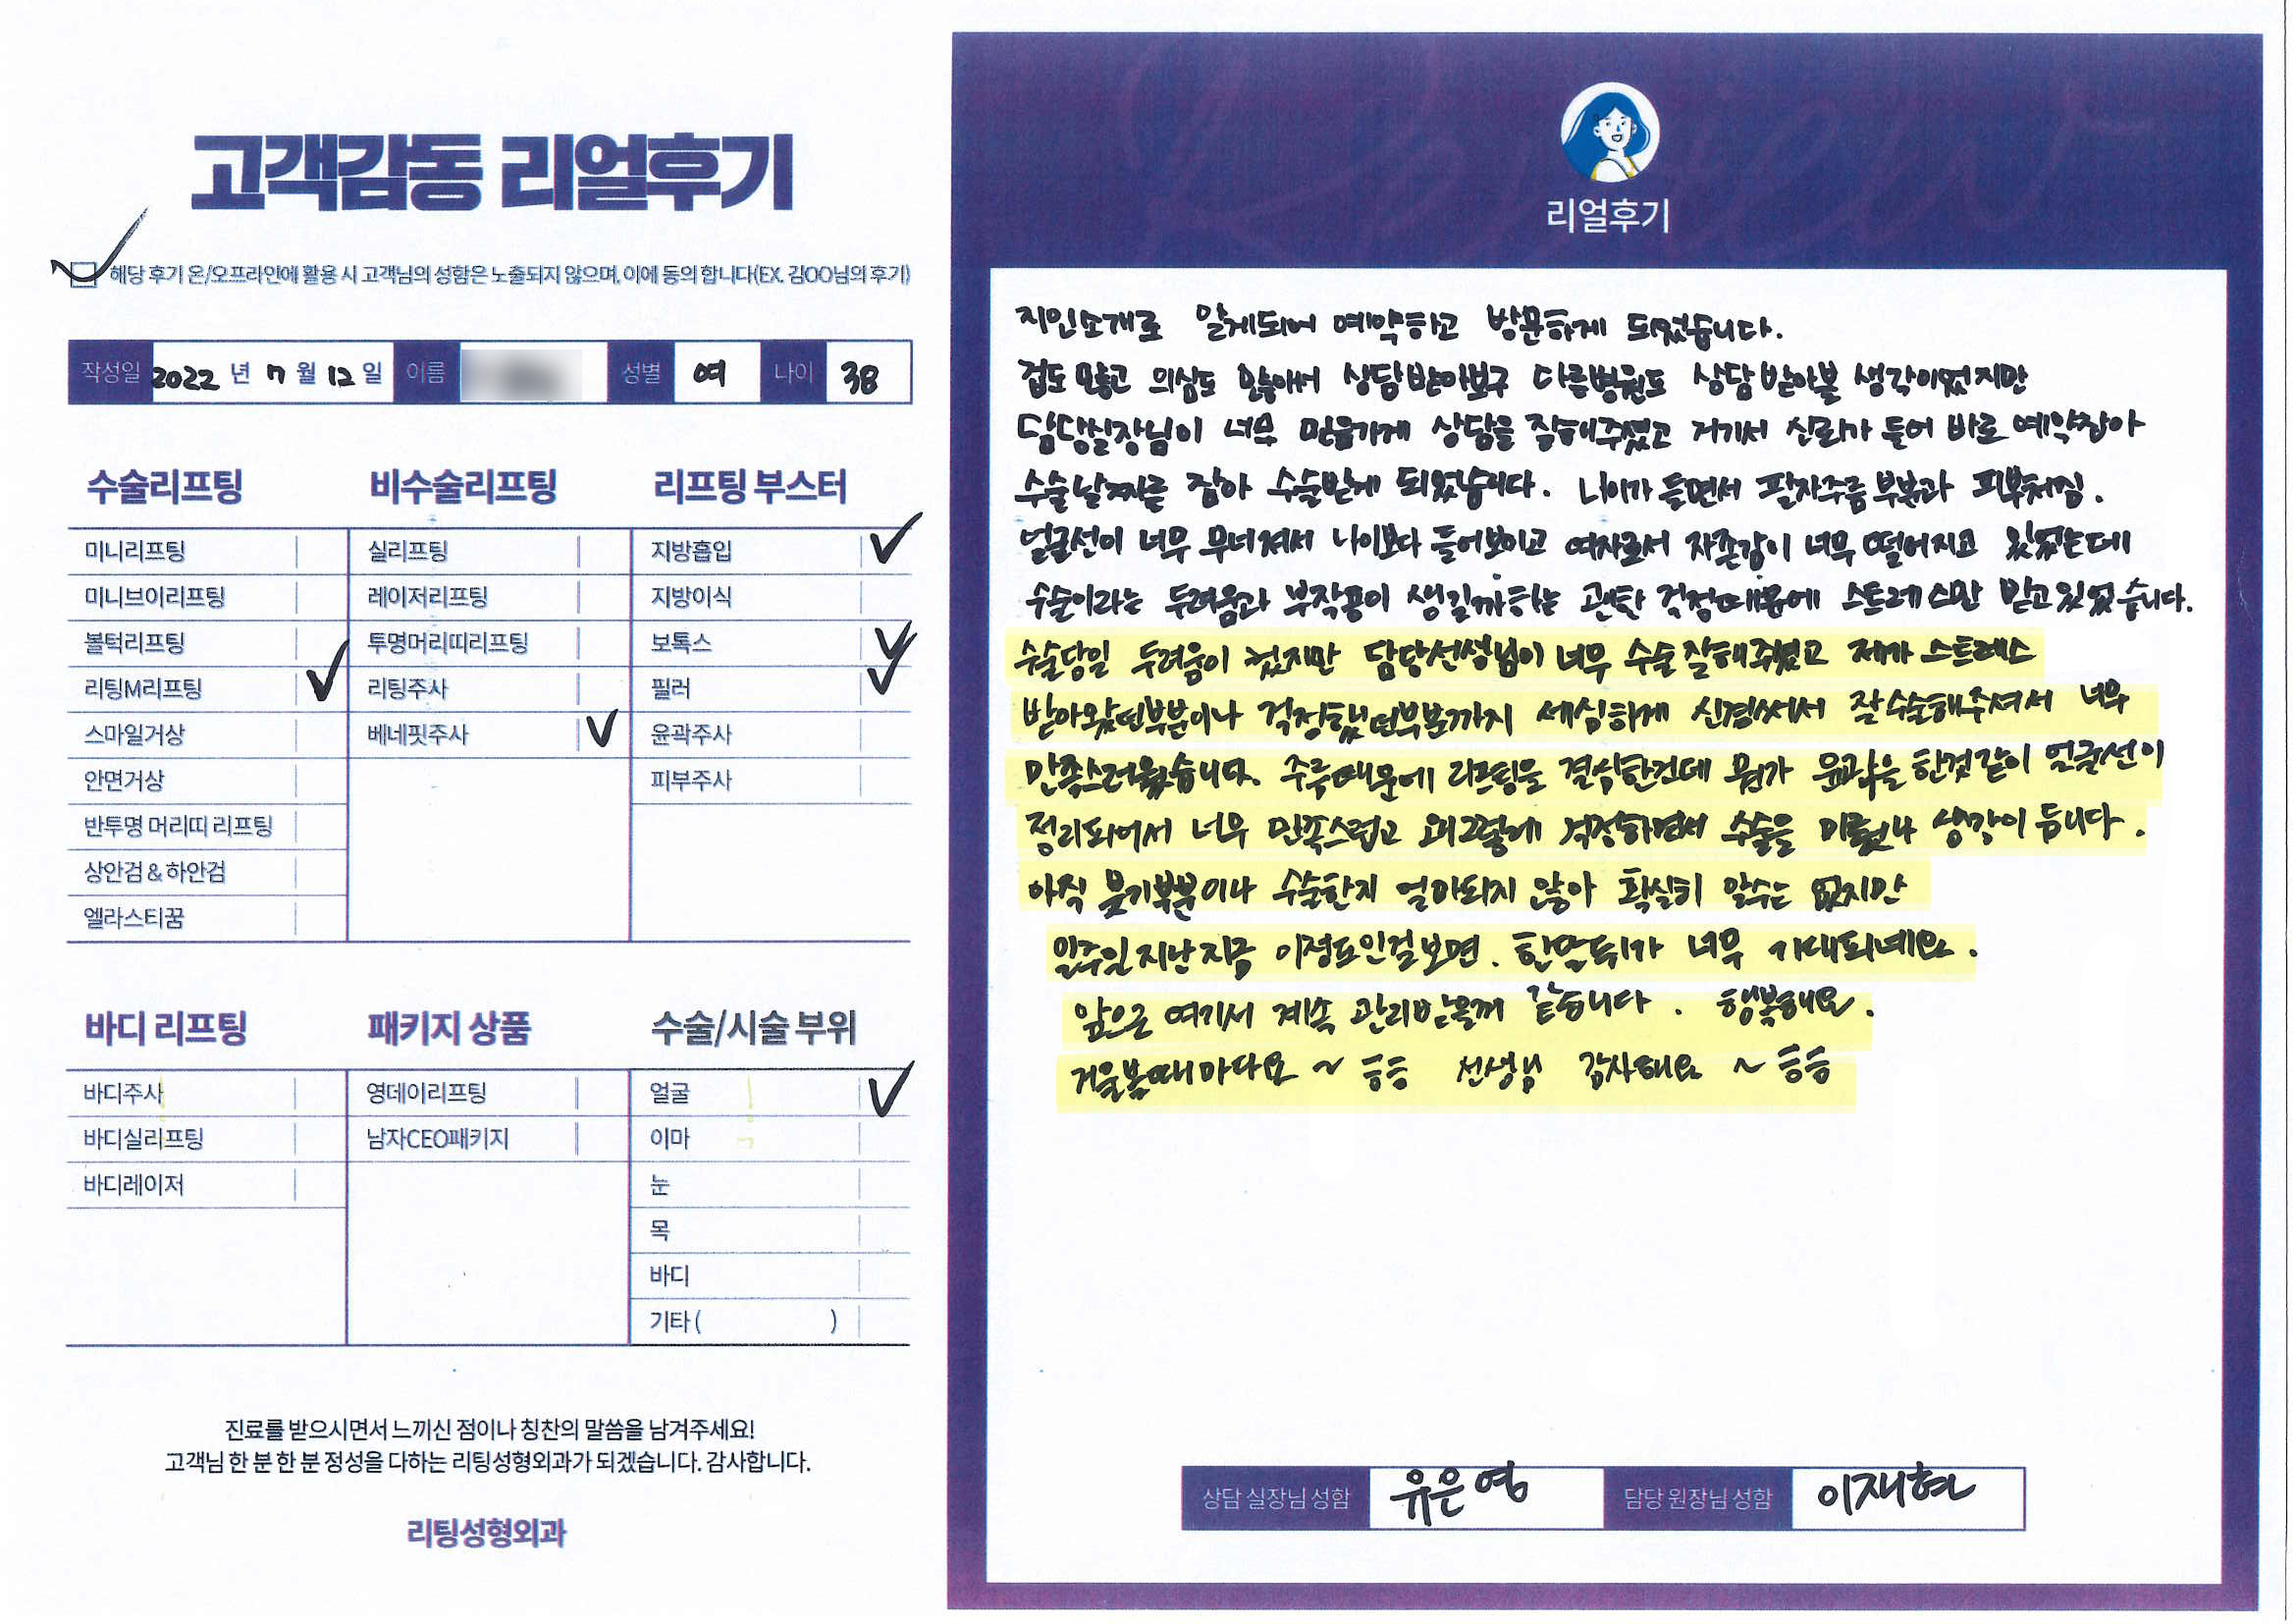 고객감동 리얼후기
해당 후기 온/오프라인에 활용 시 고객님의 성함은 노출되지 않으며, 이에 동의 합니다(EX. 김OO님의 후기)
작성일 2022 년 7 월 12 일 이름 성별 여 나이 38
수술리프팅
미니리프팅
미니브이리프팅
볼턱리프팅
리팅M리프팅
스마일거상
안면거상
반투명 머리띠 리프팅
상안검 & 하안검
엘라스티꿈
비수술리프팅
실리프팅
레이저리프팅
투명머리띠리프팅
리팅주사
베네핏주사
리프팅 부스터
지방흡입
지방이식
보톡스
필러
윤곽주사
피부주사
바디 리프팅
바디주사
바디실리프팅
바디레이저
패키지 상품
영데이리프팅
남자CEO패키지
수술/시술 부위
얼굴
이마
눈
목
바디
기타 ( )
진료를 받으시면서 느끼신 점이나 칭찬의 말씀을 남겨주세요!
고객님 한 분 한 분 정성을 다하는 리팅성형외과가 되겠습니다. 감사합니다.
리팅성형외과
리얼후기
지인소개로 알게되어 예약하고 방문하게 되었습니다.
겁도 많고 의심도 많아서 상담받아보구 다른병원도 상담받아볼 생각이었지만
담당실장님이 너무 믿음가게 상담을 잘해주셨고 거기서 신뢰가 들어 바로 예약잡아
수술날짜를 잡아 수술받게 되었습니다. 나이가 들면서 팔자주름부분과 피부처짐.
얼굴선이 너무 무너져서 나이보다 들어보이고 여자로서 자존감이 너무 떨어지고 있었는데
수술이라는 두려움과 부작용이 생길까하는 괜한 걱정때문에 스트레스만 받고있었습니다.
수술당일 두려움이 컸지만 담당선생님이 너무 수술잘해주셨고 제가 스트레스
받아왔던부분이나 걱정했던부분까지 세심하게 신경써서 잘수술해주셔서 너무
만족스러웠습니다. 주름때문에 리프팅을 결심한건데 뭔가 윤곽을 한것같이 얼굴선이
정리되어서 너무 만족스럽고 왜그렇게 걱정하면서 수술을 미뤘나 생각이 듭니다.
아직 붓기부분이나 수술한지 얼마되지 않아 확실히 알수는 없지만
일주일지난지금 이정도인걸보면. 한달뒤가 너무 기대되네요.
앞으론 여기서 계속 관리받을꺼 같습니다. 행복해요.
거울볼때마다요 ~ ㅎㅎ 선생님 감사해요 ~ ㅎㅎ
상담 실장님 성함 유은영 담당 원장님 성함 이재현